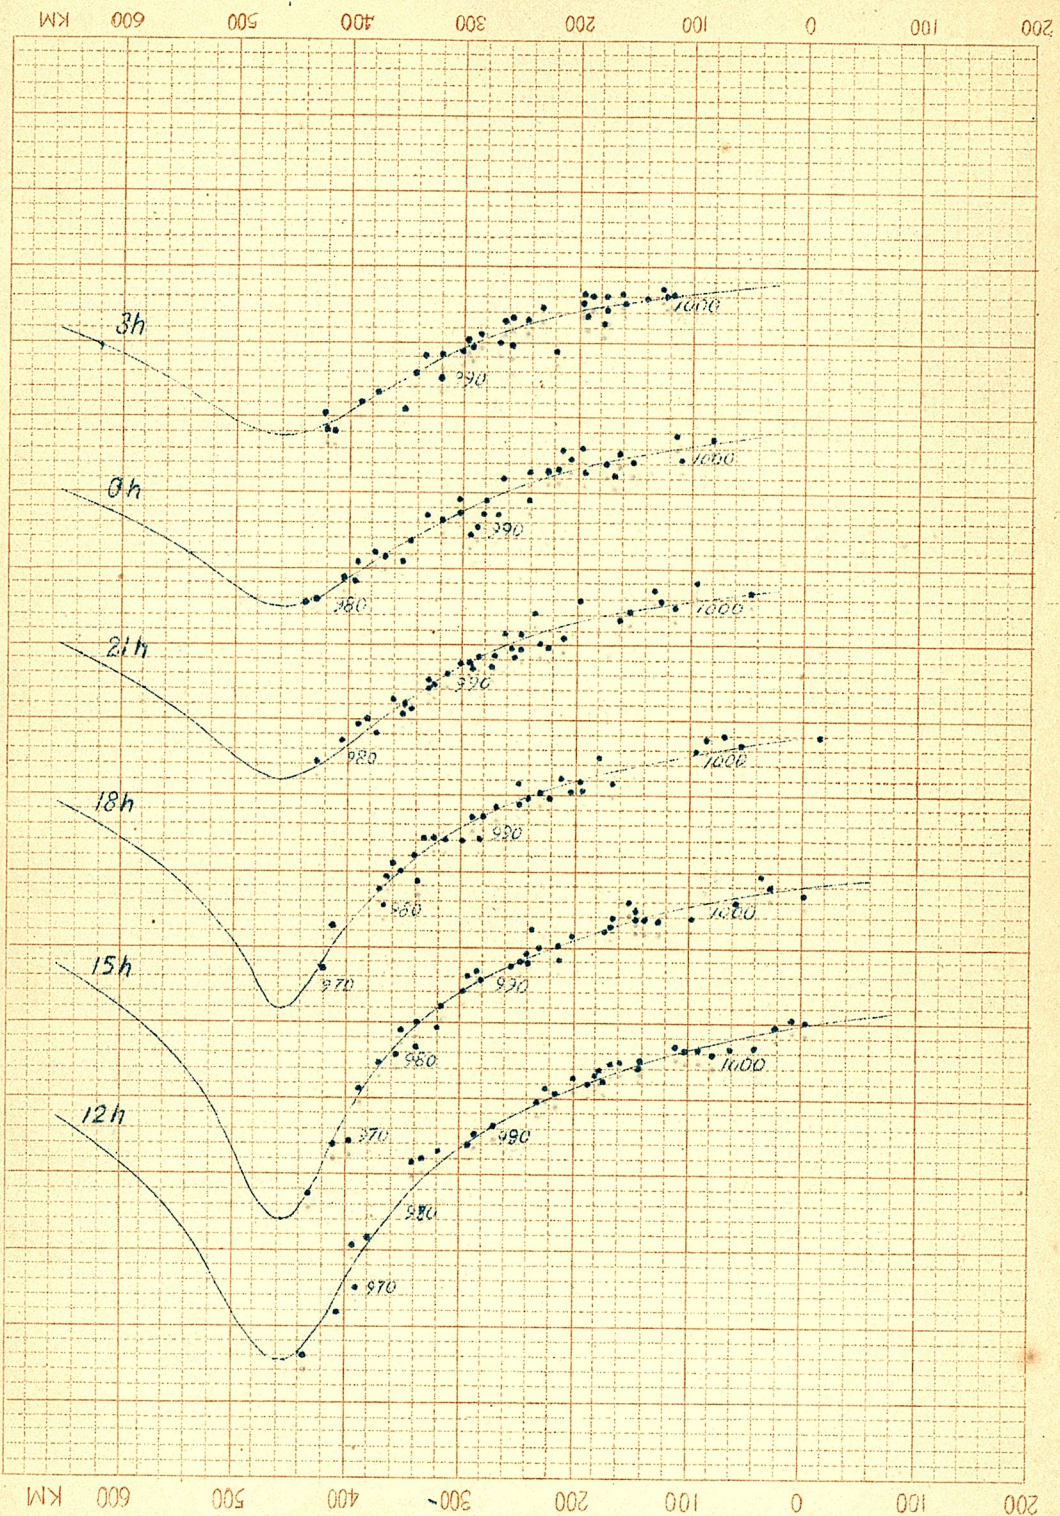 KM 600 500 400 300 200 100 0 100 200
3h
1000
990
0h
1000
990
980
21h
1000
990
980
18h
1000
990
980
970
15h
1000
990
980
970
12h
1000
990
980
970
KM 600 500 400 300 200 100 0 100 200